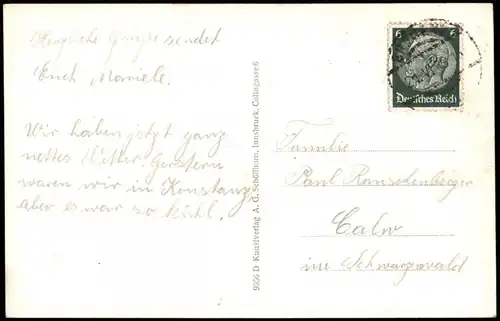 Herzliche Grüsse sendet
Euch Mariele.
Wir haben jetzt ganz
nettes Wetter. Gestern
waren wir in Konstanz
aber es war so kühl.
9956 D Kunstverlag A. D. Schöllhorn, Innsbruck, Colingasse 6
6 6
Deutsches Reich
Familie
Paul Rauschenberger
Calw
im Schwarzwald